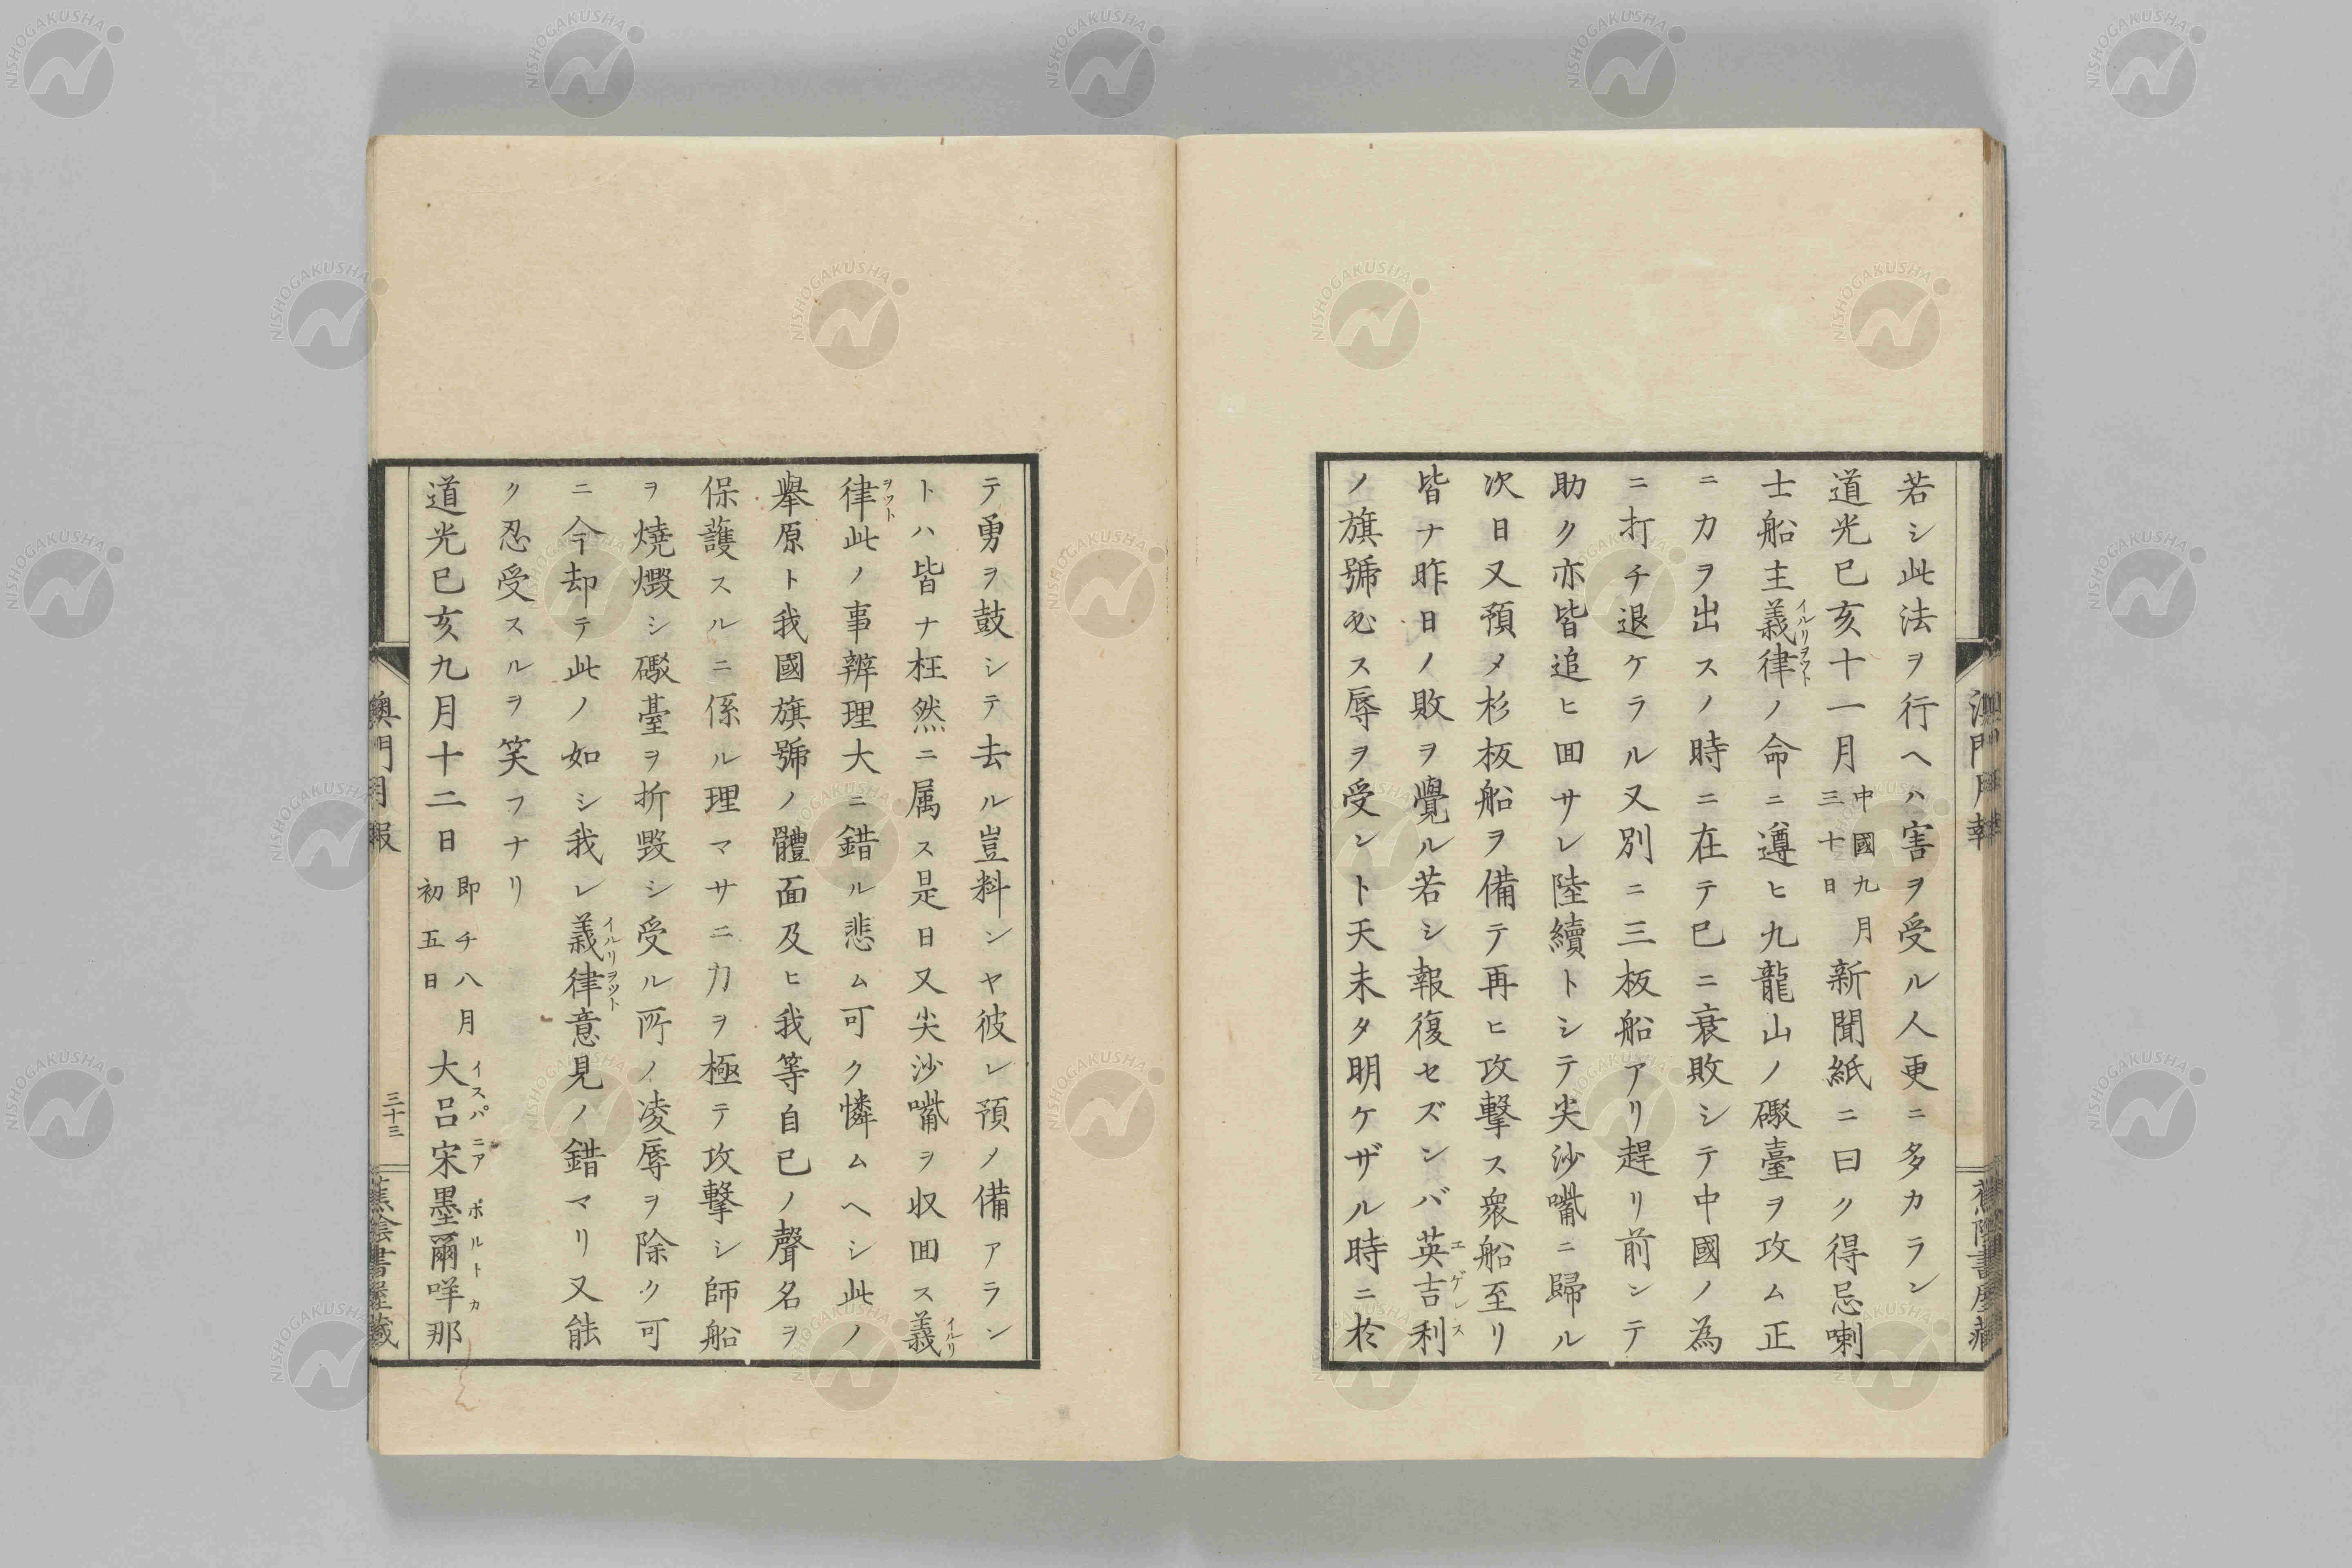 若シ此法ヲ行ヘハ害ヲ受ル人更ニ多カラン
道光己亥十一月中國九月三十日新聞紙ニ曰ク得忌喇
士船主義律ノ命ニ遵ヒ九龍山ノ礮臺ヲ攻ム正
イルリヲツト
ニカヲ出スノ時ニ在テ已ニ衰敗シテ中國ノ為
ニ打チ退ケラル又別ニ三板船アリ趕リ前ンテ
助ク亦皆追ヒ囬サレ陸續トシテ尖沙嘴ニ歸ル
次日又預メ杉板船ヲ備テ再ヒ攻擊ス衆船至リ
皆ナ昨日ノ敗ヲ覺ル若シ報復セズンバ英吉利
エゲレス
ノ旗號必ス辱ヲ受ント天未タ明ケザル時ニ於
テ勇ヲ鼓シテ去ル豈料ンヤ彼レ預ノ備アラン
トハ皆ナ枉然ニ属ス是日又尖沙嘴ヲ収囬ス義
イルリ
律此ノ事辨理大ニ錯ル悲ム可ク憐ムヘシ此ノ
ヲツト
舉原ト我國旗號ノ體面及ヒ我等自己ノ聲名ヲ
保護スルニ係ル理マサニ力ヲ極テ攻擊シ師船
ヲ燒燬シ礮臺ヲ折毀シ受ル所ノ凌辱ヲ除ク可
ニ今却テ此ノ如シ我レ義律意見ノ錯マリ又能
イルリヲツト
ク忍受スルヲ笑フナリ
道光己亥九月十二日即チ八月初五日大呂宋墨爾咩那
イスパニア ボルトカ
澳門月報
三十三
蕉陰書屋藏
NISHOGAKUSHA